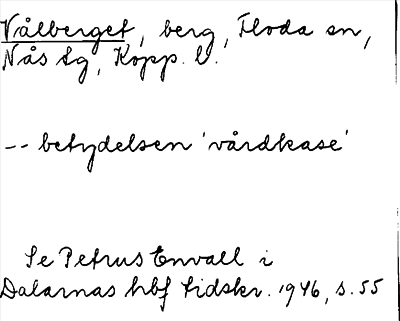 Vålberget, berg, Floda sn,
Nås tg, Kopp. l.
-- betydelsen 'vårdkase'
Se Petrus Envall i
Dalarnas hbf tidskr. 1946, s. 55